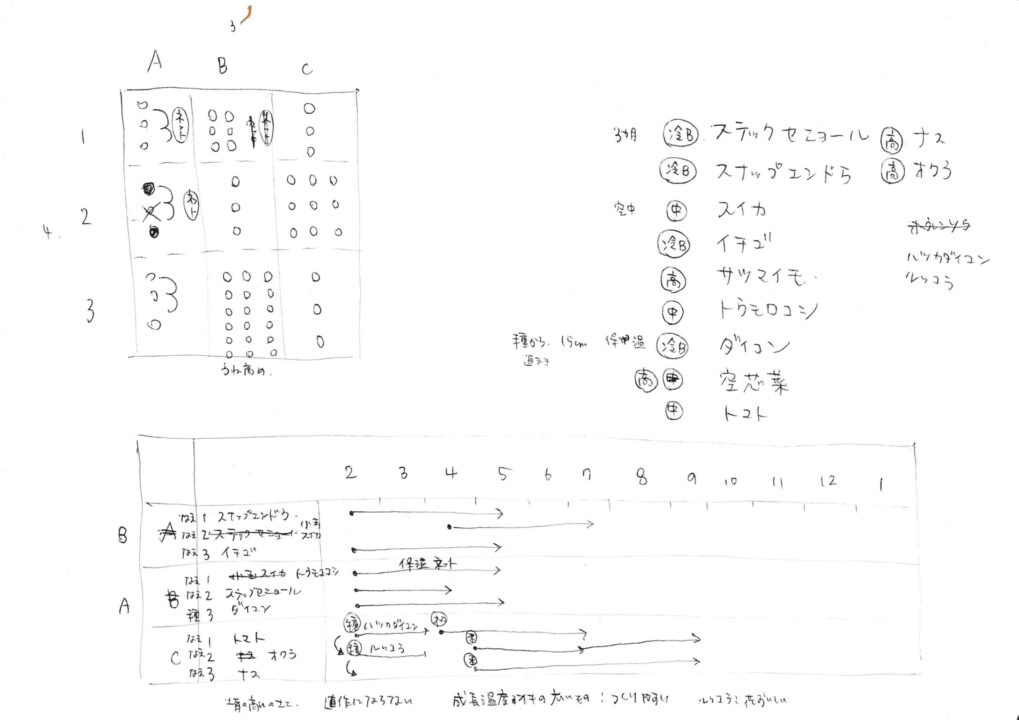 3
A B C
1 ネット
2 ネット
4.
3
うね高め.
3カ月 冷B スティックセニョール 高 ナス
冷B スナップエンドウ 高 オクラ
空中 中 スイカ
ホウレンソウ
冷B イチゴ
ハツカダイコン
高 サツマイモ
ルッコラ
中 トウモロコシ
種から. 15cm 保温 冷B ダイコン
高 中 空芯菜
中 トマト
2 3 4 5 6 7 8 9 10 11 12 1
B A なえ 1 スナップエンドウ
なえ 2 スティックセニョール 小玉スイカ
なえ 3 イチゴ
A B なえ 1 小玉スイカ トウモロコシ 保温ネット
なえ 2 スティックセニョール
種 3 ダイコン
C なえ 1 トマト 種 ハツカダイコン
なえ 2 オクラ 種 ルッコラ
なえ 3 ナス
連作にならない 成長温度 の広いもの:つくりやすい ルッコラ:花おいしい